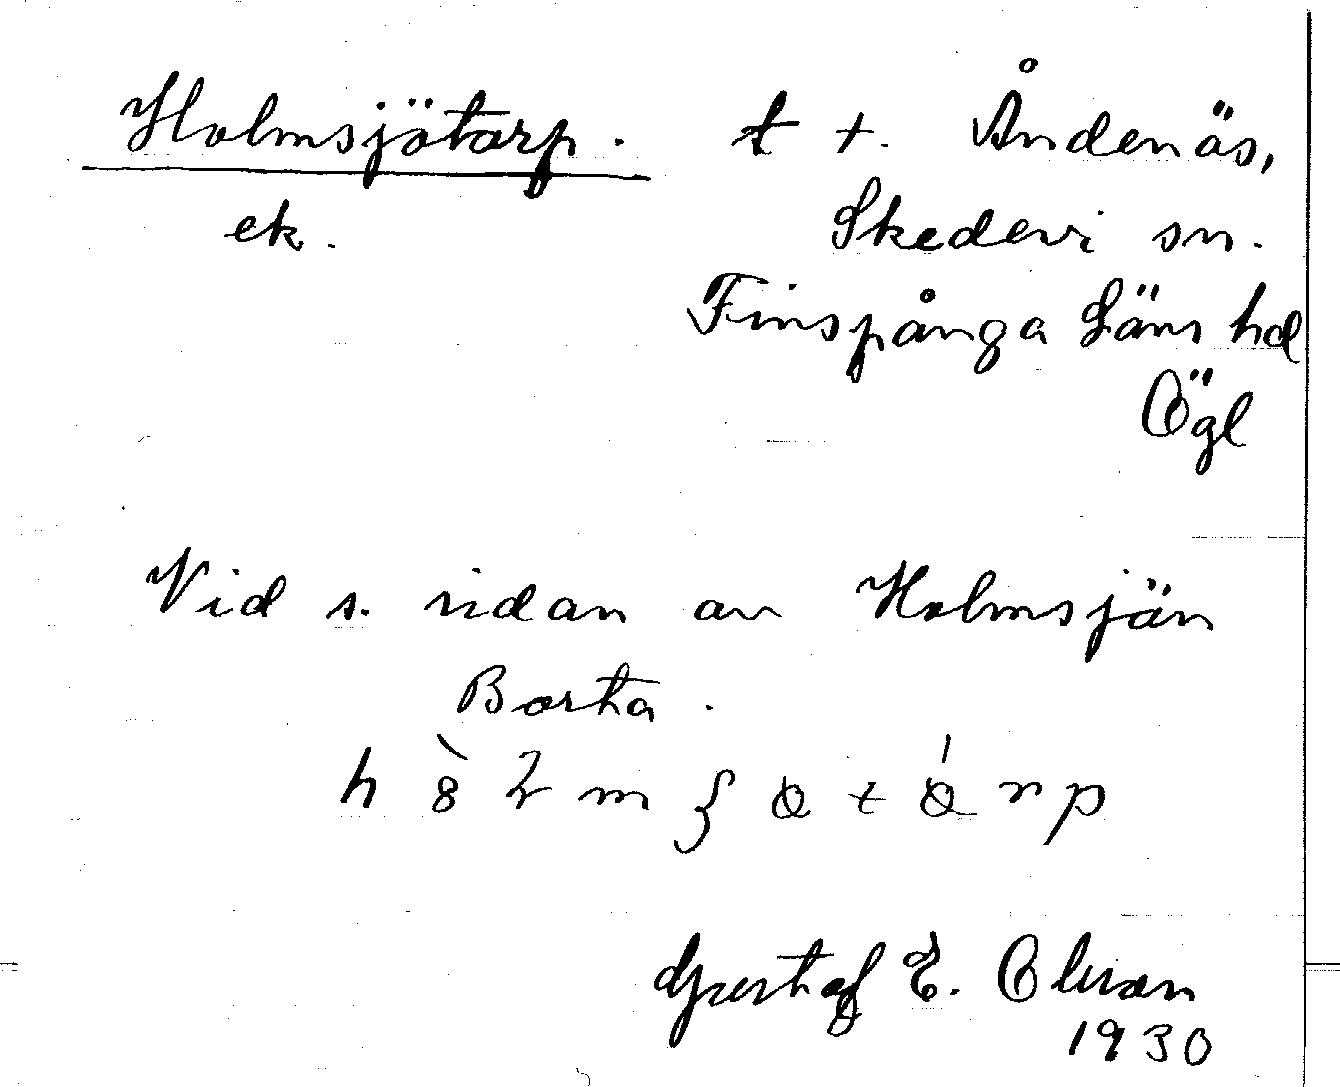 Holmsjötorp. t t. Åndenäs,
ek. Skedevi sn.
Finspånga Läns hd
Ögl
Vid s. sidan av Holmsjön
Borta.
Gustaf E. Olsson
1930